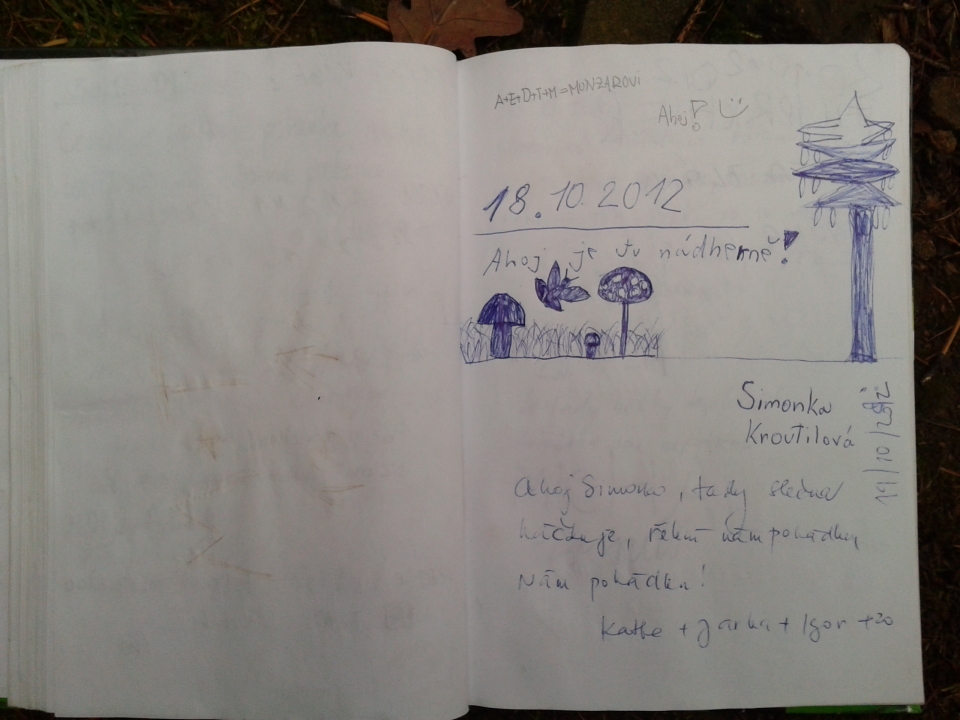 A+E+D+T+M=MUNZAROVI
Ahoj! :)
18.10.2012
Ahoj je tu nádherně!
Simonka
Kroutilová
19/10/
Ahoj Simonko, tady slečna
řekni nám pohádku
Nám pohádku!
Katte + Jarka + Igor +